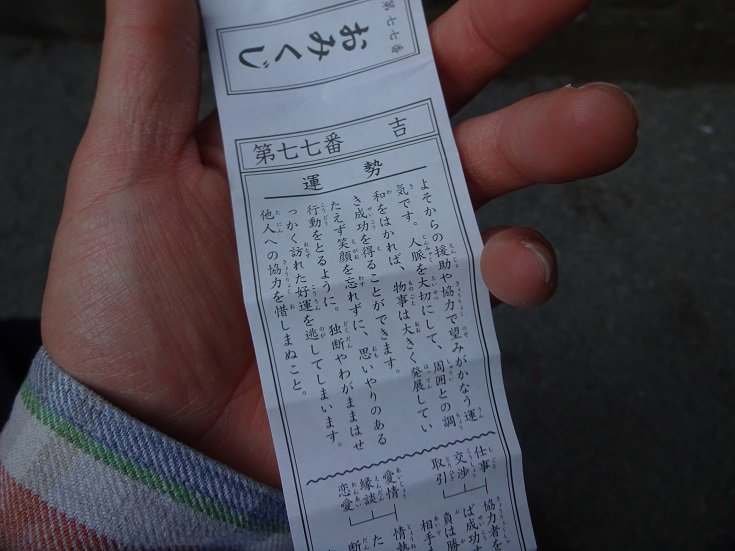 第七七番
おみくじ
第七七番 吉
運勢
よそからの援助や協力で望みがかなう運
気です。人脈を大切にして、周囲との調
和をはかれば、物事は大きく発展してい
き成功を得ることができます。
たえず笑顔を忘れずに、思いやりのある
行動をとるように。独断やわがままはせ
っかく訪れた好運を逃してしまいます。
他人への協力を惜しまぬこと。
仕事
交渉
取引
協力者を
ば成功す
負は勝
相手
愛情
縁談
恋愛
情熱
た
断